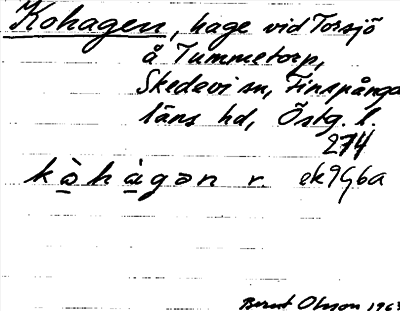 Kohagen, hage vid Torsjö
å Tummetorp,
Skedevi sn, Finspånga
läns hd, Östg. l.
274
kòhàgən r. ek9G6a
Bernt Olsson 1963